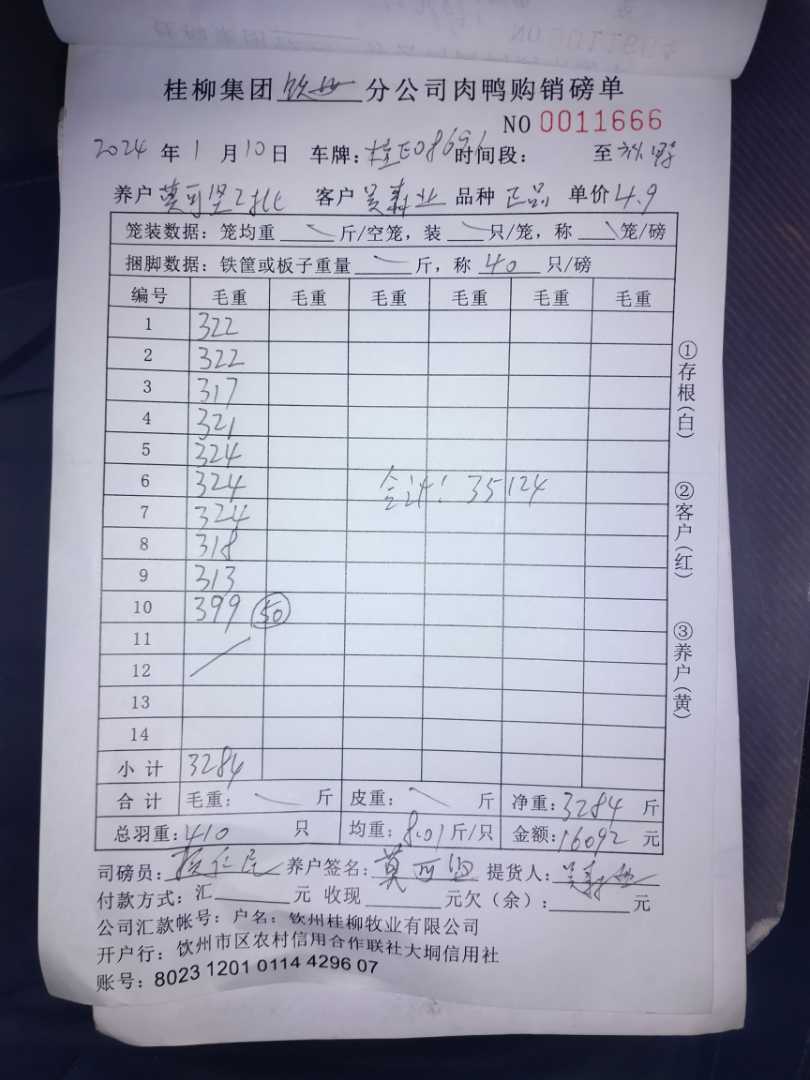 桂柳集团钦州分公司肉鸭购销磅单
NO 0011666
2024年1月10日 车牌:桂E08691时间段: 至
养户莫可坚2批 客户吴寿业 品种正品 单价4.9
笼装数据:笼均重 斤/空笼,装 只/笼,称 笼/磅
捆脚数据:铁筐或板子重量 斤,称 40 只/磅
编号 毛重 毛重 毛重 毛重 毛重 毛重
1 322
2 322
3 317
4 321
5 324
6 324 合计:35124
7 324
8 318
9 313
10 399 50
11
12
13
14
小计 3284
合计 毛重: 斤 皮重: 斤 净重:3284 斤
总羽重:410 只 均重:8.01斤/只 金额:16092 元
司磅员: 养户签名:莫可坚 提货人:吴寿业
付款方式:汇 元 收现 元欠(余): 元
公司汇款帐号:户名:钦州桂柳牧业有限公司
开户行:饮州市区农村信用合作联社大垌信用社
账号:8023 1201 0114 4296 07
①存根(白)
②客户(红)
③养户(黄)